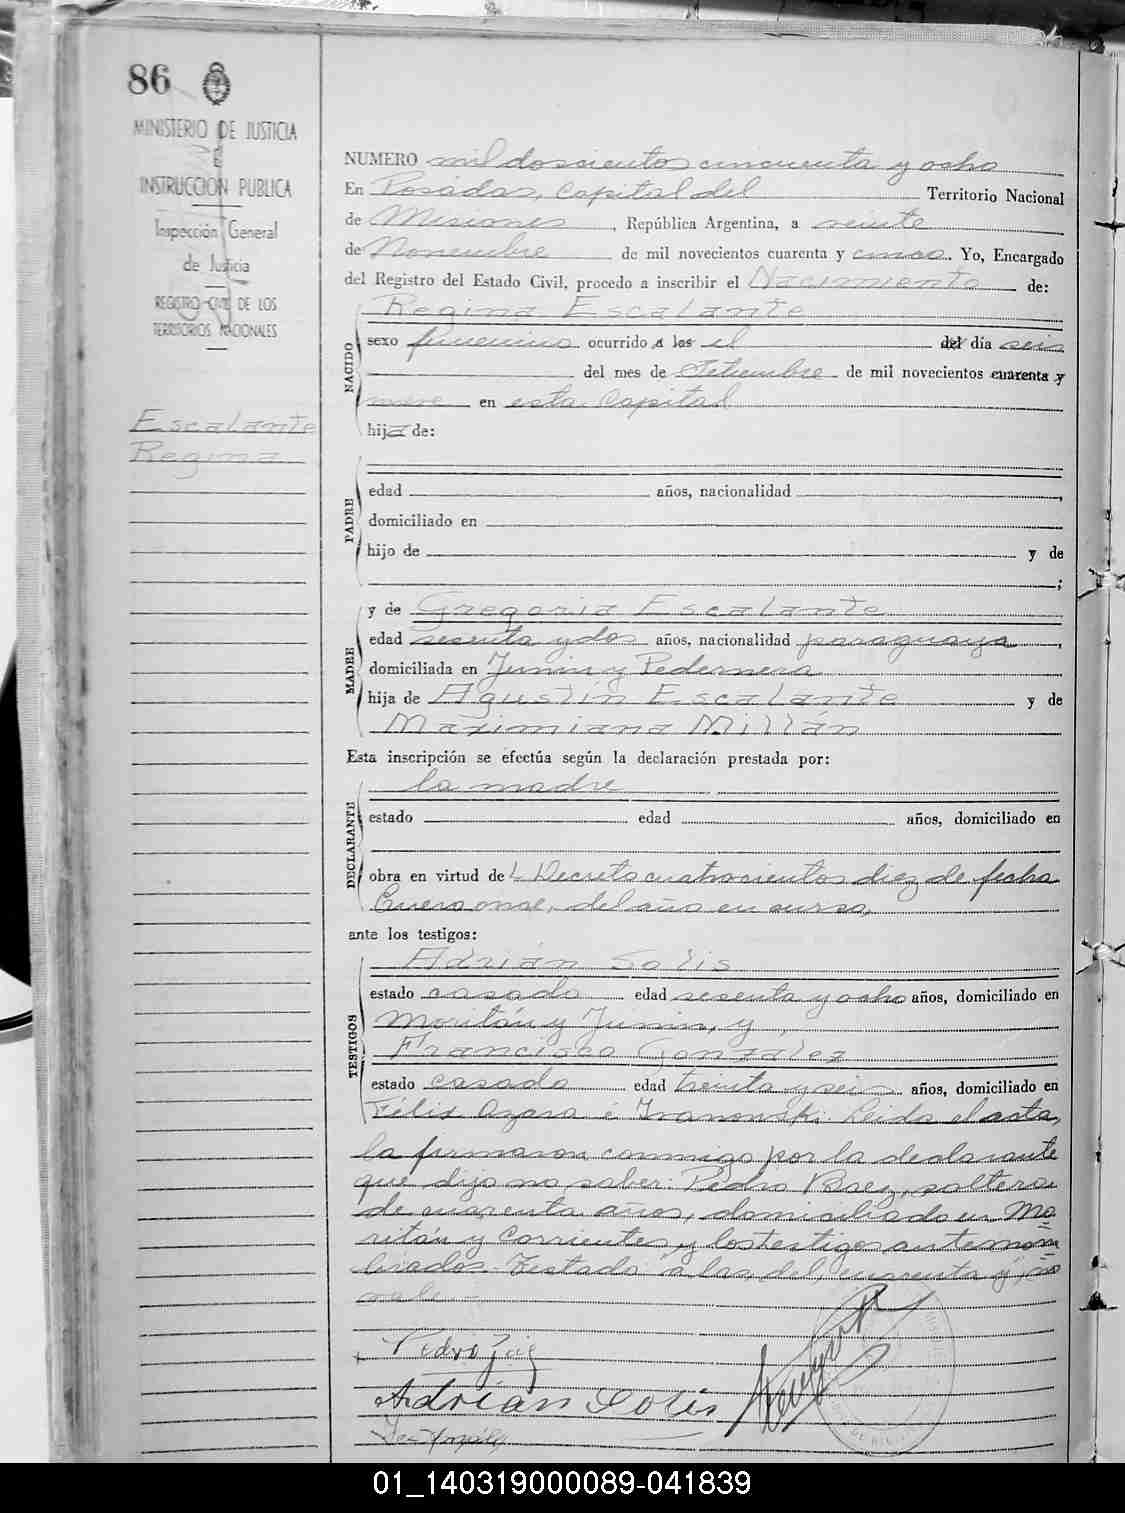 86
MINISTERIO DE JUSTICIA
E
INSTRUCCION PUBLICA
Inspección General
de Justicia
REGISTRO CIVIL DE LOS
TERRITORIOS NACIONALES
Escalante
Regina
NUMERO mil doscientos cincuenta y ocho
En Posadas, Capital del Territorio Nacional
de Misiones, República Argentina, a veinte
de Noviembre de mil novecientos cuarenta y cinco. Yo, Encargado
del Registro del Estado Civil, procedo a inscribir el Nacimiento de:
NACIDO
Regina Escalante
sexo femenino ocurrido a las el del día seis
del mes de Setiembre de mil novecientos cuarenta y
nueve en esta Capital
hija de:
PADRE
edad años, nacionalidad ,
domiciliado en
hijo de y de
;
MADRE
y de Gregoria Escalante
edad sesenta y dos años, nacionalidad paraguaya,
domiciliada en Junin y Pedernera
hija de Agustín Escalante y de
Maximiana Millán
Esta inscripción se efectúa según la declaración prestada por:
DECLARANTE
la madre
estado edad años, domiciliado en
obra en virtud del Decreto cuatrocientos diez de fecha
Enero once, del año en curso,
ante los testigos:
TESTIGOS
Adrián Solis
estado casado edad sesenta y ocho años, domiciliado en
Moritán y Junin, y
Francisco González
estado casado edad treinta y seis años, domiciliado en
Félix Azara é Ivanowski. Leida el acta,
la firmaron conmigo por la declarante
que dijo no saber: Pedro Baez, soltero
de cuarenta años, domiciliado en Mo
ritán y Corrientes, y los testigos antenom
brados. Testado "a las, del, cuarenta y", no
vale.-
Adrian Solis
01_140319000089-041839